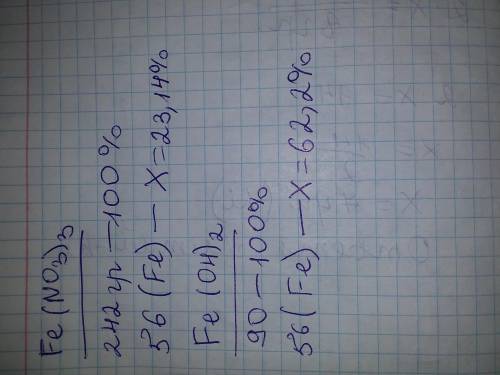 Fe(NO3)3
242 гр — 100%
56 (Fe) — X = 23,14%
Fe(OH)2
90 — 100%
56 (Fe) — X = 62,2%